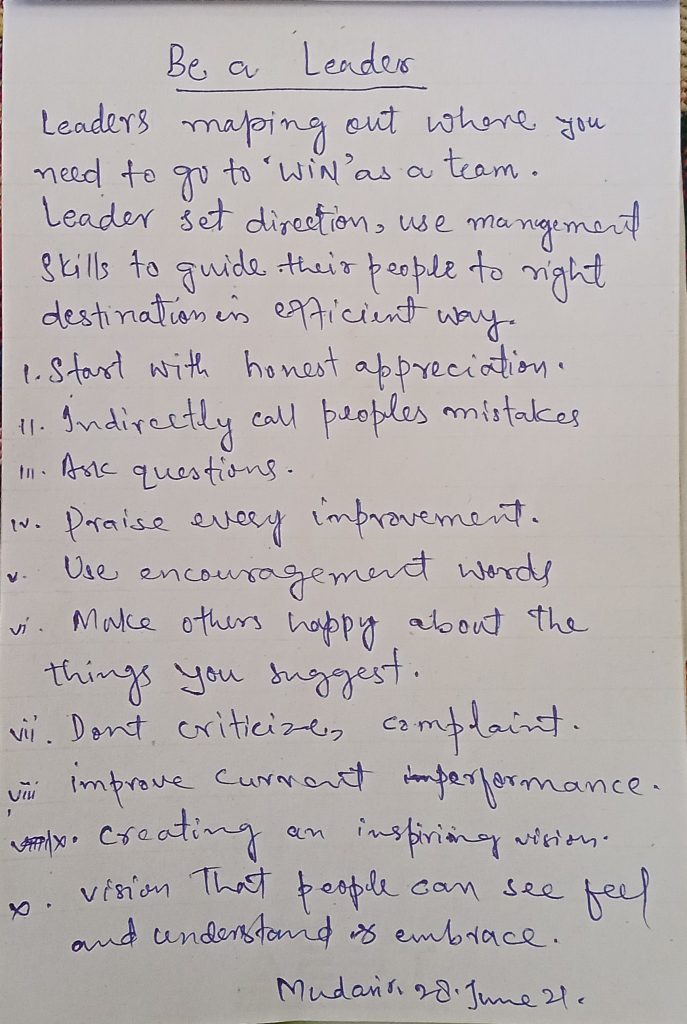 Be a Leader
Leaders maping out where you
need to go to 'WIN' as a team.
Leader set direction, use mangement
skills to guide their people to right
destination in efficient way.
1. Start with honest appreciation.
11. Indirectly call peoples mistakes
111. Ask questions.
iv. Praise every improvement.
v. Use encouragement words
vi. Make others happy about the
things you suggest.
vii. Dont criticize, complaint.
viii improve current performance.
ix. creating an inspiring vision.
x. vision That people can see feel
and understand & embrace.
28. June 21.